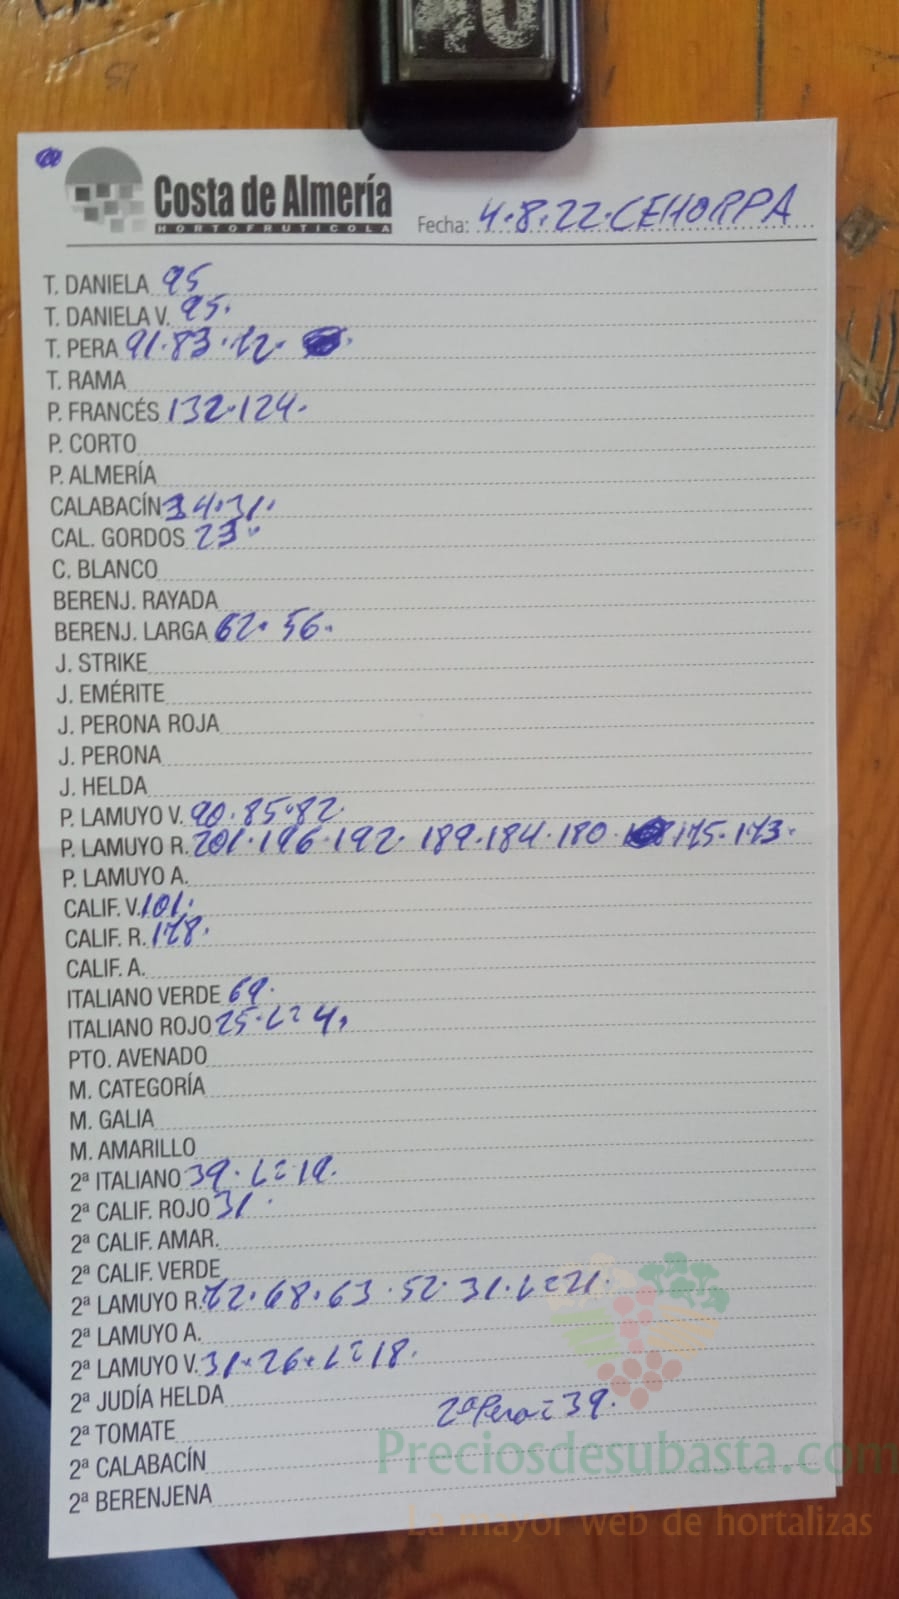 Costa de Almería
HORTOFRUTICOLA
Fecha: 4.8.22.CEHORPA
T. DANIELA 95
T. DANIELA V. 95.
T. PERA 91.83.72.
T. RAMA
P. FRANCÉS 132.124.
P. CORTO
P. ALMERÍA
CALABACÍN 34.31.
CAL. GORDOS 23.
C. BLANCO
BERENJ. RAYADA
BERENJ. LARGA 62. 56.
J. STRIKE
J. EMÉRITE
J. PERONA ROJA
J. PERONA
J. HELDA
P. LAMUYO V. 90.85.82.
P. LAMUYO R. 201.196.192. 189.184.180. 175.173.
P. LAMUYO A.
CALIF. V. 101.
CALIF. R. 178.
CALIF. A.
ITALIANO VERDE 69.
ITALIANO ROJO 25.L=
PTO. AVENADO
M. CATEGORÍA
M. GALIA
M. AMARILLO
2ª ITALIANO 39.L=19.
2ª CALIF. ROJO 31.
2ª CALIF. AMAR.
2ª CALIF. VERDE
2ª LAMUYO R. 72.68.63.52.31.L=21.
2ª LAMUYO A.
2ª LAMUYO V. 31.26.L=18.
2ª JUDÍA HELDA
2ª Pera=39.
2ª TOMATE
2ª CALABACÍN
2ª BERENJENA
Preciosdesubasta.com
La mayor web de hortalizas